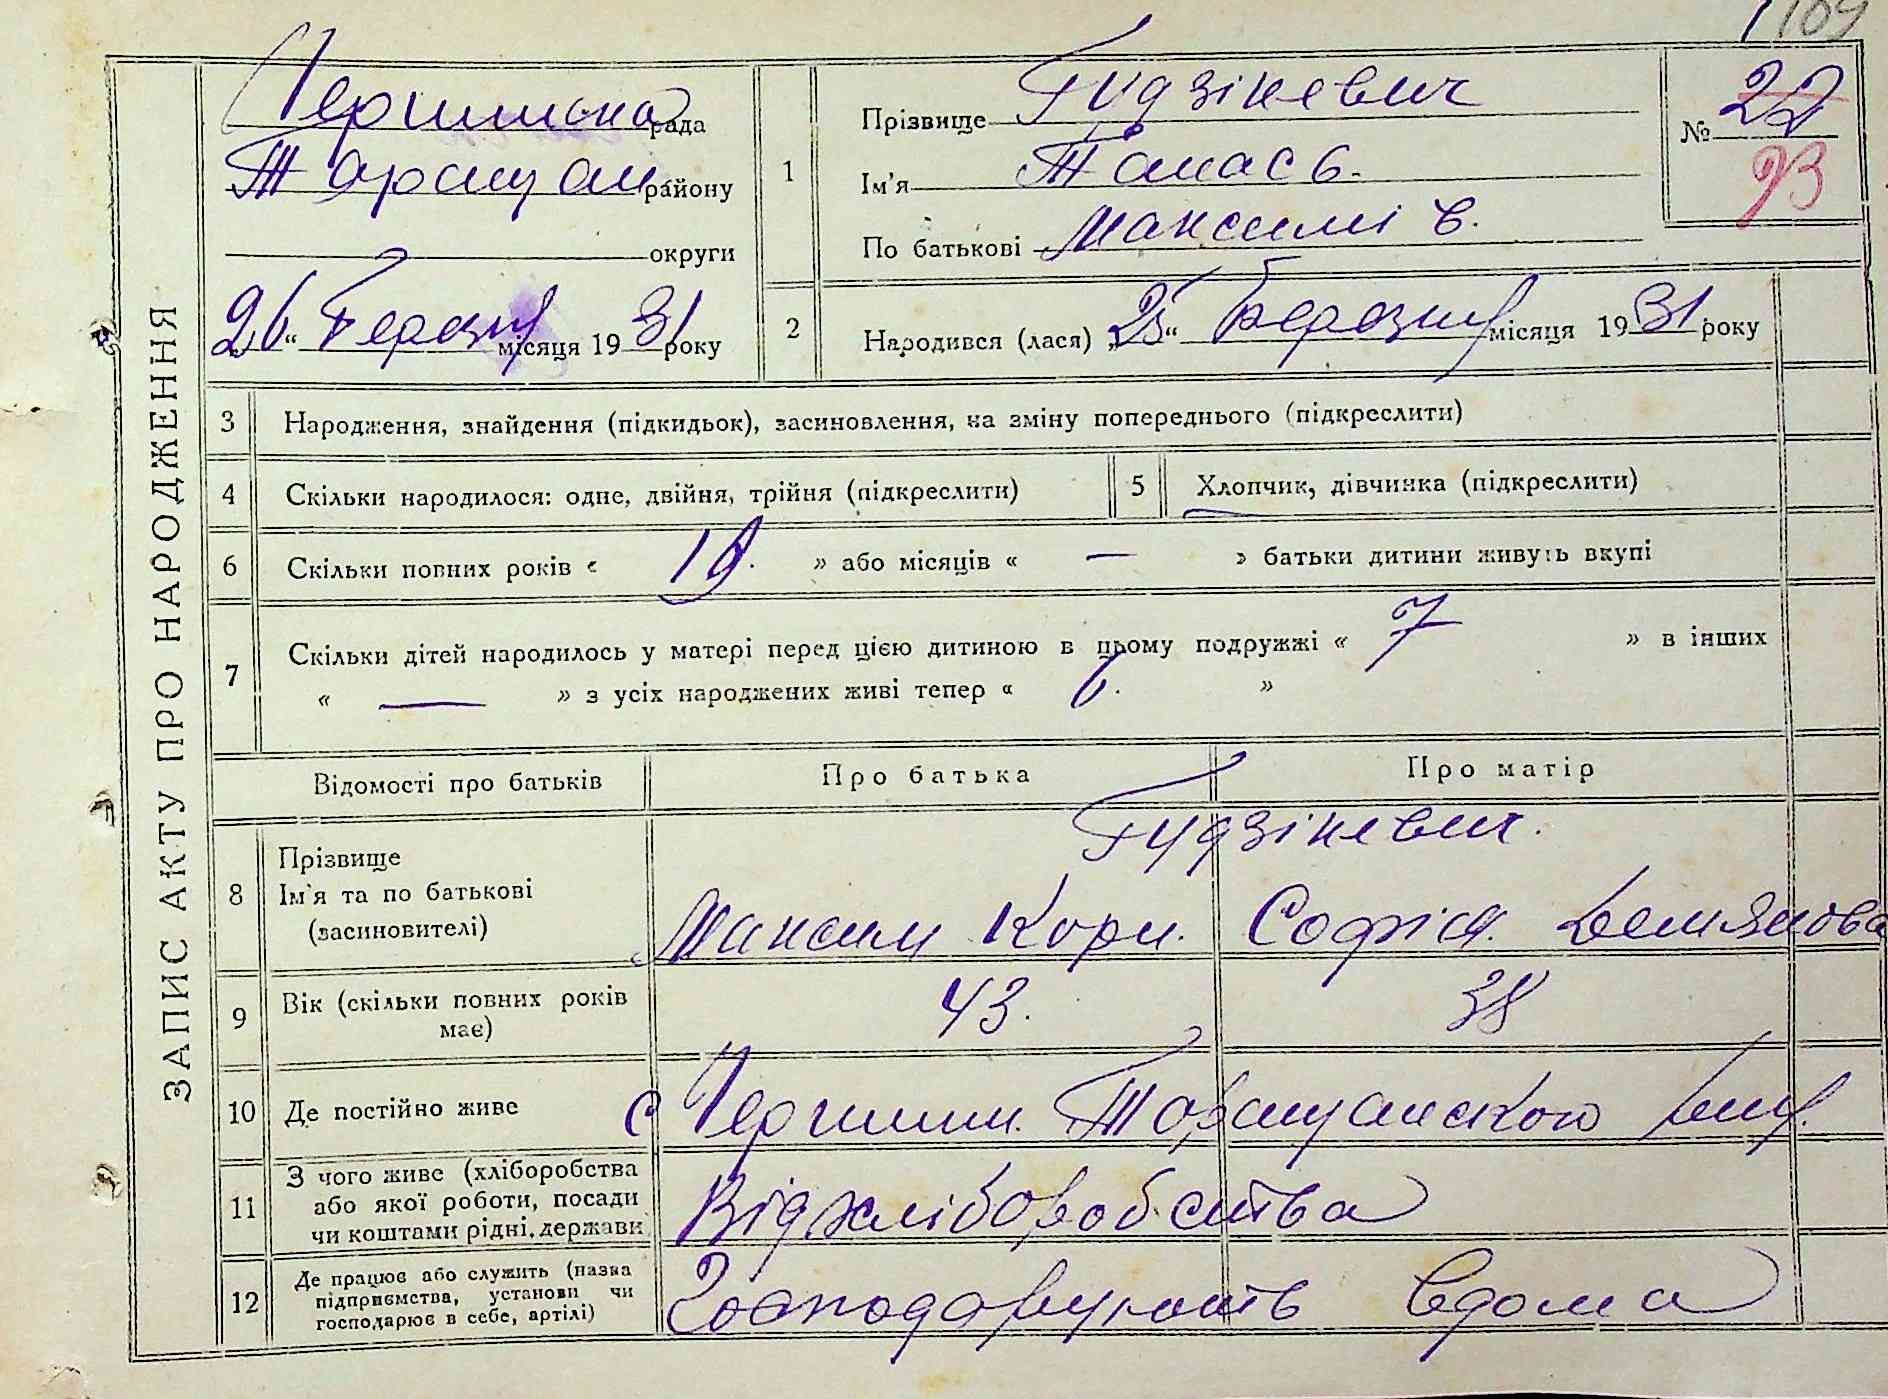 109
ЗАПИС АКТУ ПРО НАРОДЖЕННЯ
рада
району
округи
„26“ Березня місяця 1931 року
1
Прізвище Гудзікевич
Ім'я Танась.
По батькові Максимів.
№ 22
23
2
Народився (лася) „25“ Березня місяця 1931 року
3 Народження, знайдення (підкидьок), засиновлення, на зміну попереднього (підкреслити)
4 Скільки народилося: одне, двійня, трійня (підкреслити)
5 Хлопчик, дівчинка (підкреслити)
6 Скільки повних років « 19. » або місяців « — » батьки дитини живуть вкупі
7 Скільки дітей народилось у матері перед цією дитиною в цьому подружжі « 7 » в інших
« — » з усіх народжених живі тепер « 6. »
Відомості про батьків Про батька Про матір
8 Прізвище Гудзікевич.
Ім'я та по батькові Максим Корн. Софія Демянова
(засиновителі)
9 Вік (скільки повних років 43. 38
має)
10 Де постійно живе с
11 З чого живе (хліборобства
або якої роботи, посади Від хліборобства
чи коштами рідні, держави
12 Де працює або служить (назва
підприємства, установи чи Господарують вдома
господарює в себе, артілі)